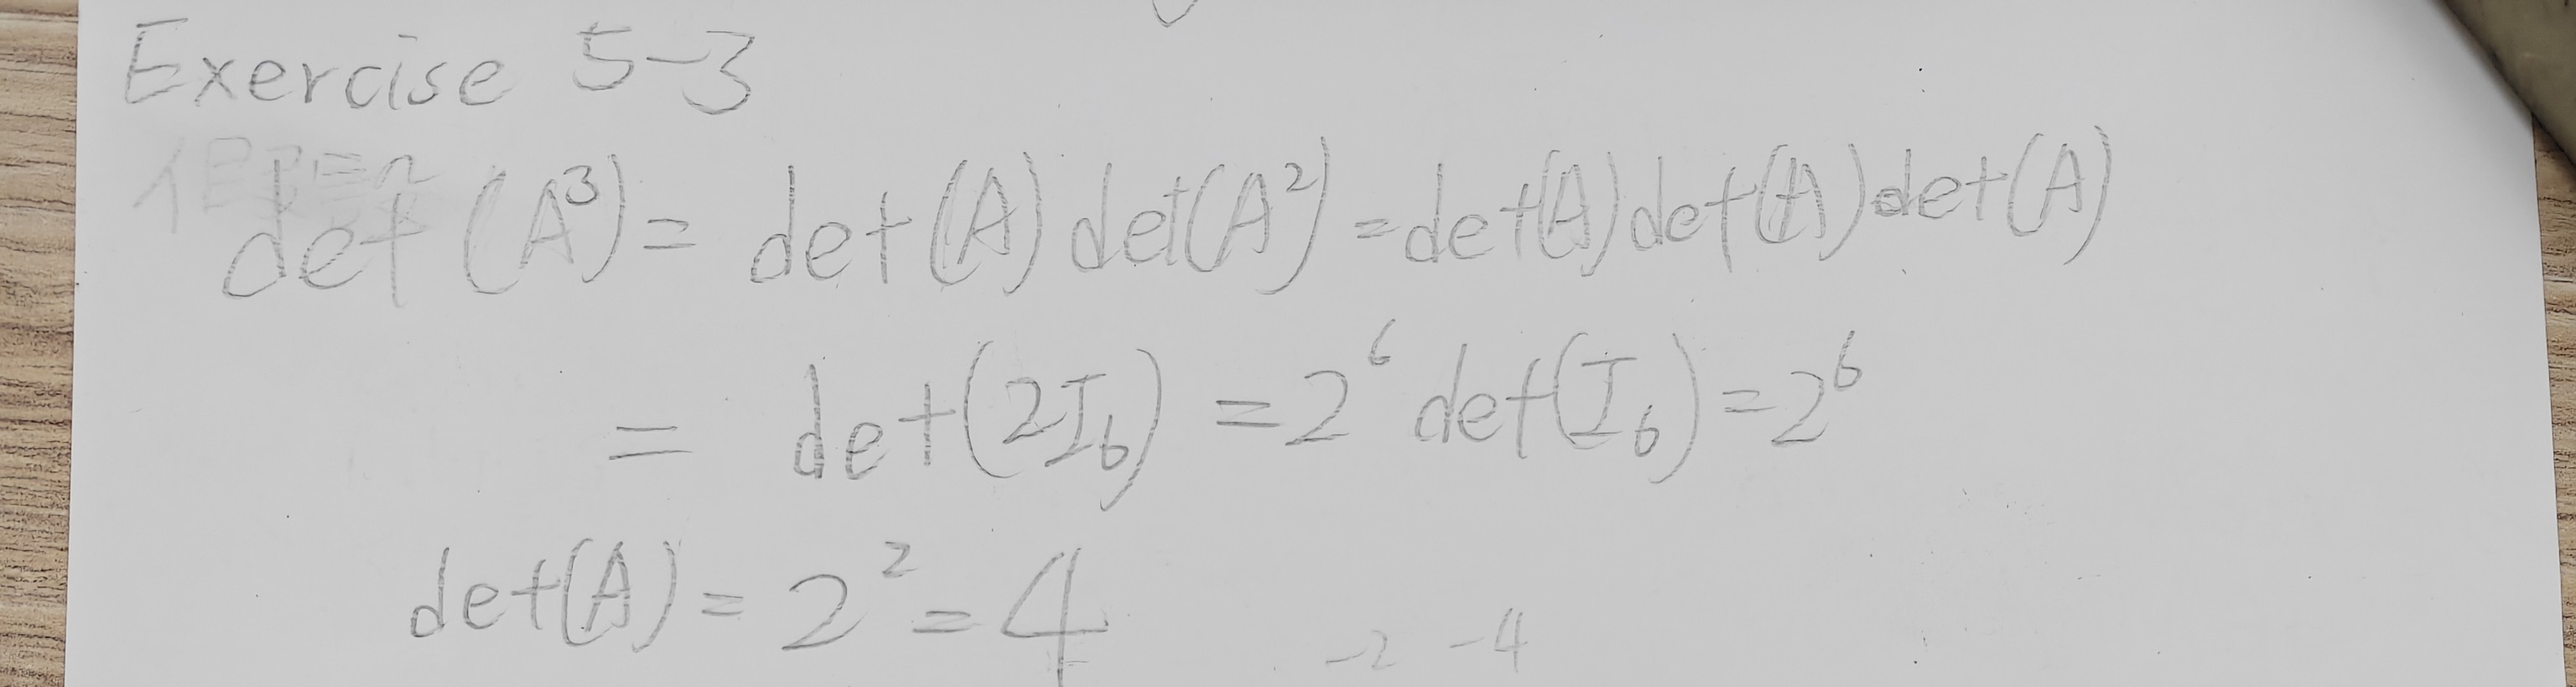 Exercise 5-3
假設
det (A³) = det(A) det(A²) = det(A) det(A) det(A)
= det(2I₆) = 2⁶ det(I₆) = 2⁶
det(A) = 2² = 4
-2 -4